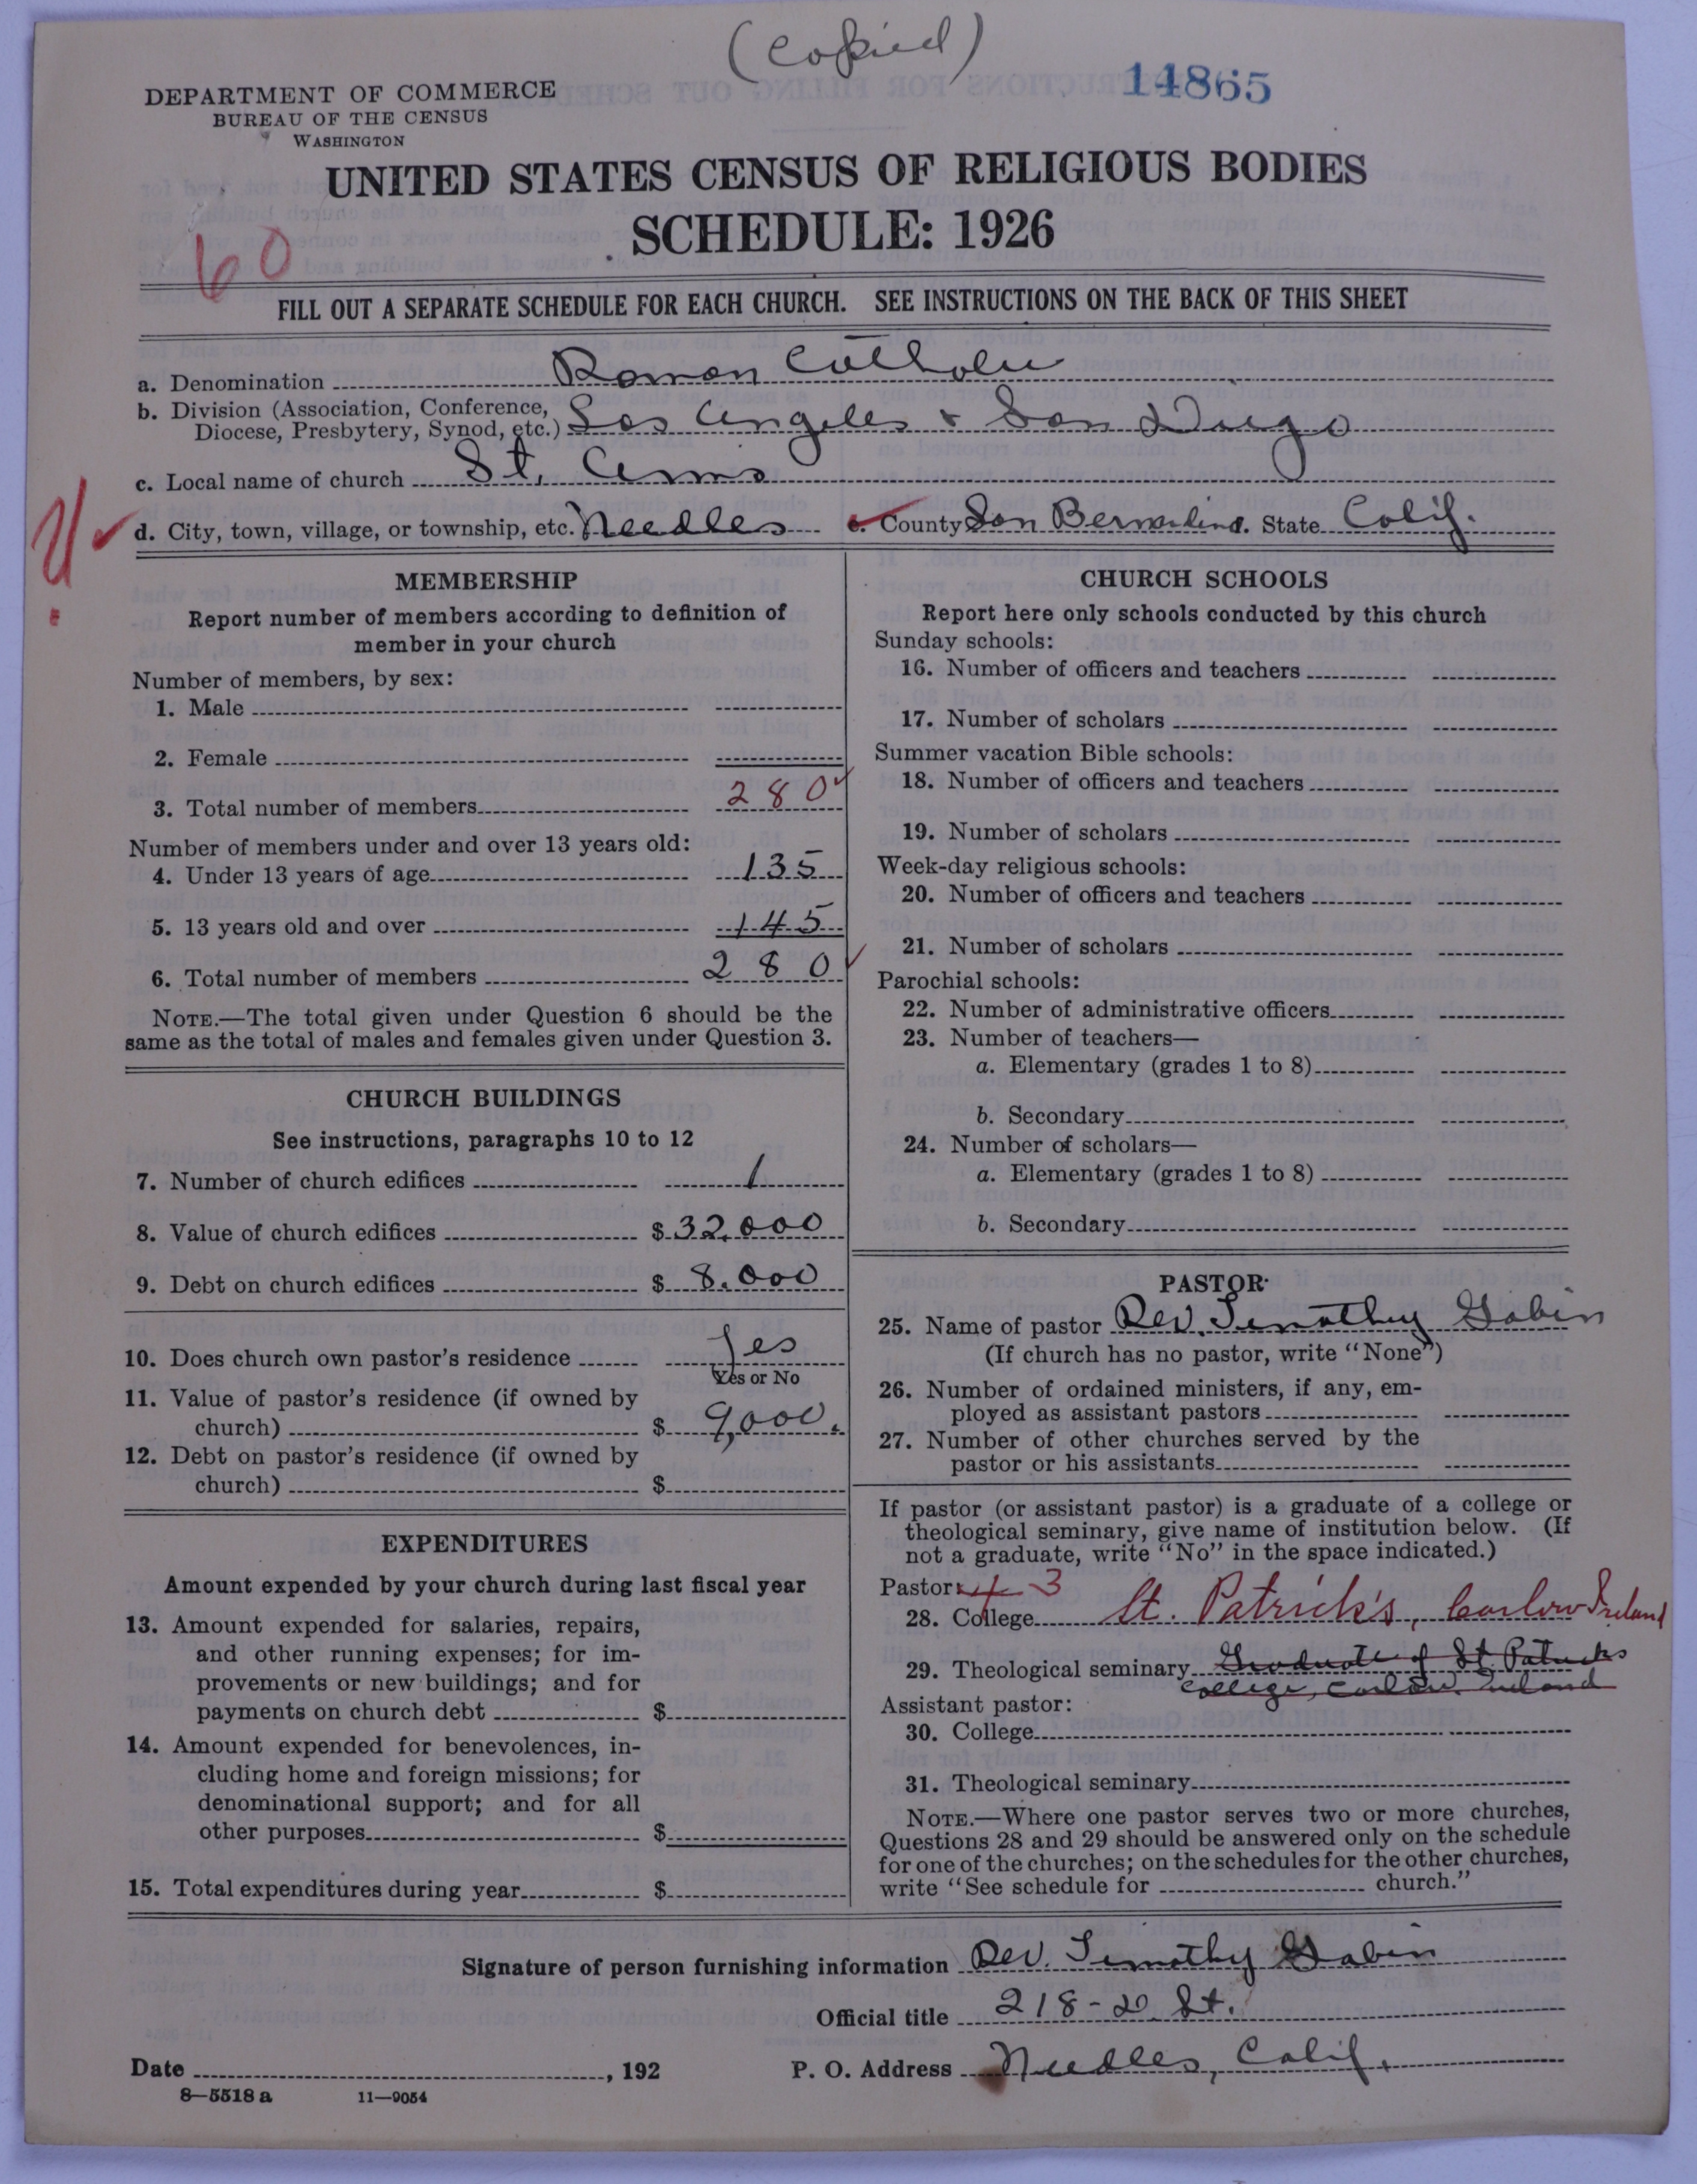 (Copied)
14865
DEPARTMENT OF COMMERCE
BUREAU OF THE CENSUS
WASHINGTON
UNITED STATES CENSUS OF RELIGIOUS BODIES
SCHEDULE: 1926
60
FILL OUT A SEPARATE SCHEDULE FOR EACH CHURCH. SEE INSTRUCTIONS ON THE BACK OF THIS SHEET
a. Denomination Roman Catholic
b. Division (Association, Conference, Diocese, Presbytery, Synod, etc.) Los Angeles & San Diego
c. Local name of church St. Anns
d. City, town, village, or township, etc. Needles e. County San Bernardino. State Calif.
MEMBERSHIP
Report number of members according to definition of
member in your church
Number of members, by sex:
1. Male
2. Female
3. Total number of members 280
Number of members under and over 13 years old:
4. Under 13 years of age 135
5. 13 years old and over 145
6. Total number of members 280
NOTE.—The total given under Question 6 should be the
same as the total of males and females given under Question 3.
CHURCH BUILDINGS
See instructions, paragraphs 10 to 12
7. Number of church edifices 1
8. Value of church edifices $ 32,000
9. Debt on church edifices $ 8,000
10. Does church own pastor's residence Yes
Yes or No
11. Value of pastor's residence (if owned by
church) $ 9,000.
12. Debt on pastor's residence (if owned by
church) $
EXPENDITURES
Amount expended by your church during last fiscal year
13. Amount expended for salaries, repairs,
and other running expenses; for im-
provements or new buildings; and for
payments on church debt $
14. Amount expended for benevolences, in-
cluding home and foreign missions; for
denominational support; and for all
other purposes $
15. Total expenditures during year $
CHURCH SCHOOLS
Report here only schools conducted by this church
Sunday schools:
16. Number of officers and teachers
17. Number of scholars
Summer vacation Bible schools:
18. Number of officers and teachers
19. Number of scholars
Week-day religious schools:
20. Number of officers and teachers
21. Number of scholars
Parochial schools:
22. Number of administrative officers
23. Number of teachers—
a. Elementary (grades 1 to 8)
b. Secondary
24. Number of scholars—
a. Elementary (grades 1 to 8)
b. Secondary
PASTOR
25. Name of pastor Rev. Timothy Galvin
(If church has no pastor, write "None")
26. Number of ordained ministers, if any, em-
ployed as assistant pastors
27. Number of other churches served by the
pastor or his assistants
If pastor (or assistant pastor) is a graduate of a college or
theological seminary, give name of institution below. (If
not a graduate, write "No" in the space indicated.)
Pastor: 3
28. College St. Patrick's, Carlow Ireland
29. Theological seminary Graduate of St Patricks
College, Carlow Ireland
Assistant pastor:
30. College
31. Theological seminary
NOTE.—Where one pastor serves two or more churches,
Questions 28 and 29 should be answered only on the schedule
for one of the churches; on the schedules for the other churches,
write "See schedule for church."
Signature of person furnishing information Rev. Timothy Galvin
Official title 218-D St.
Date , 192 P. O. Address Needles, Calif.
8—5518 a 11—9054